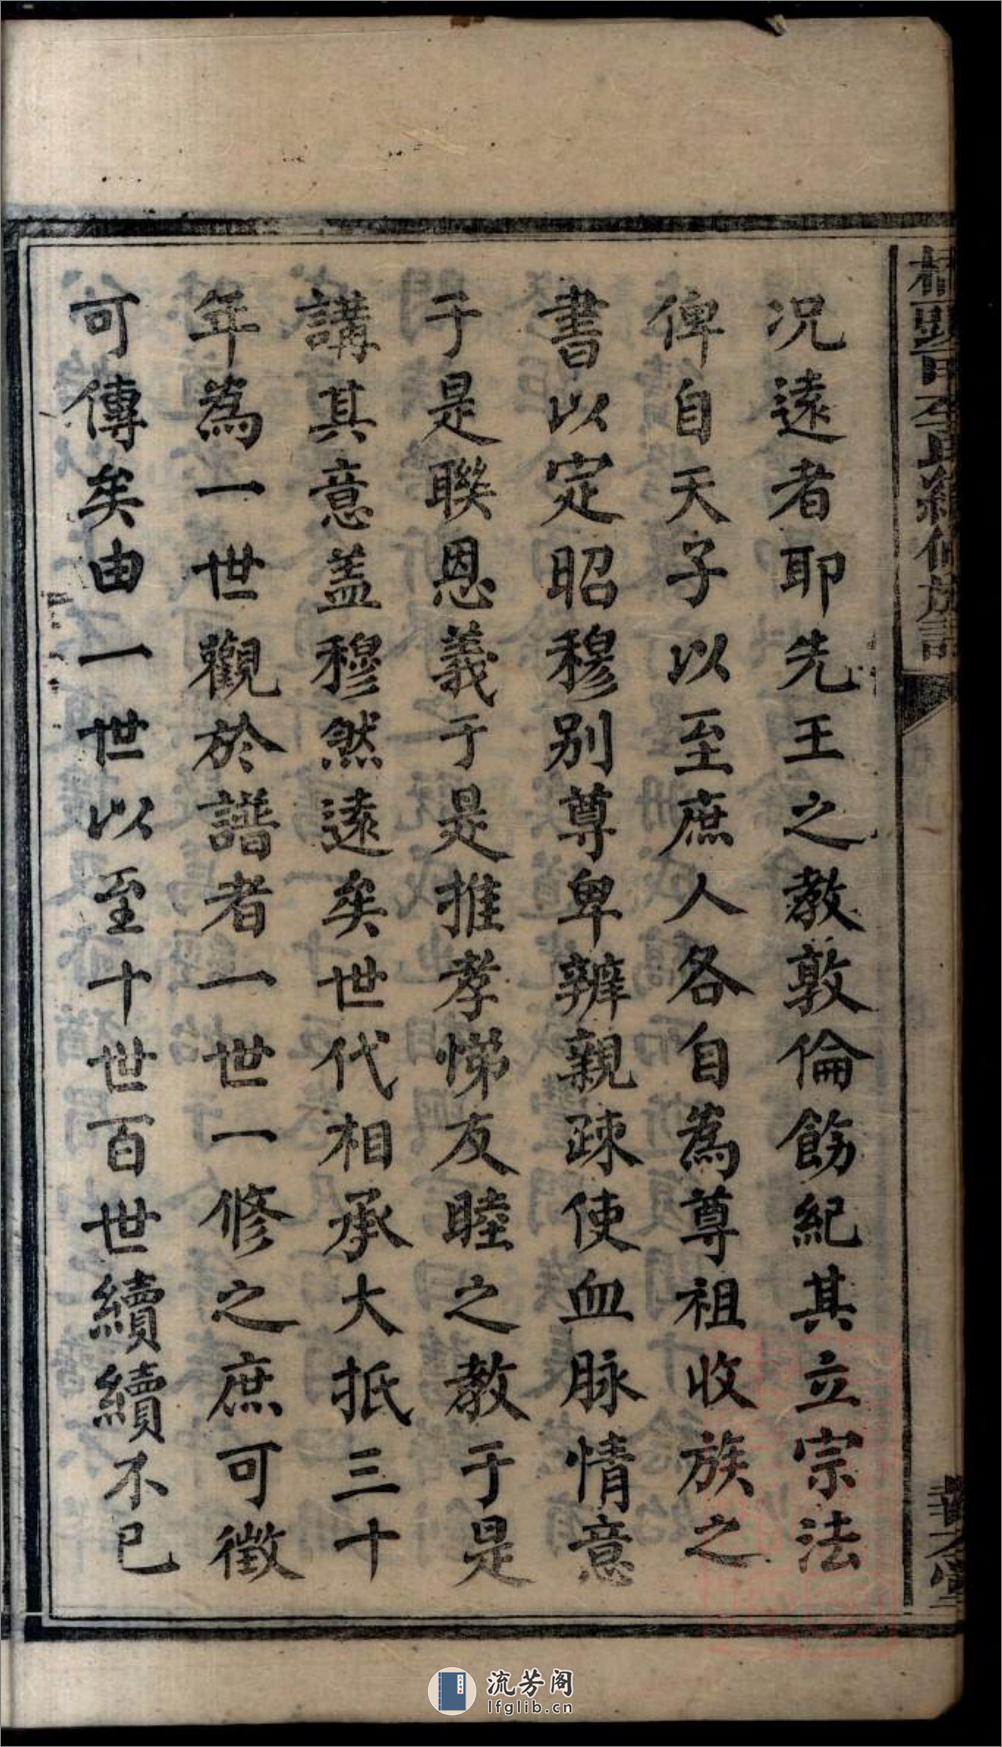 况遠者耶先王之教敦倫飭紀其立宗法
俾自天子以至庶人各自為尊祖收族之
書以定昭穆別尊卑辨親疎使血脉情意
于是聯恩義于是推孝悌友睦之教于是
講其意盖穆然遠矣世代相承大抵三十
年為一世觀於譜者一世一修之庶可徵
可傳矣由一世以至十世百世續續不已
流芳阁
lfglib.cn